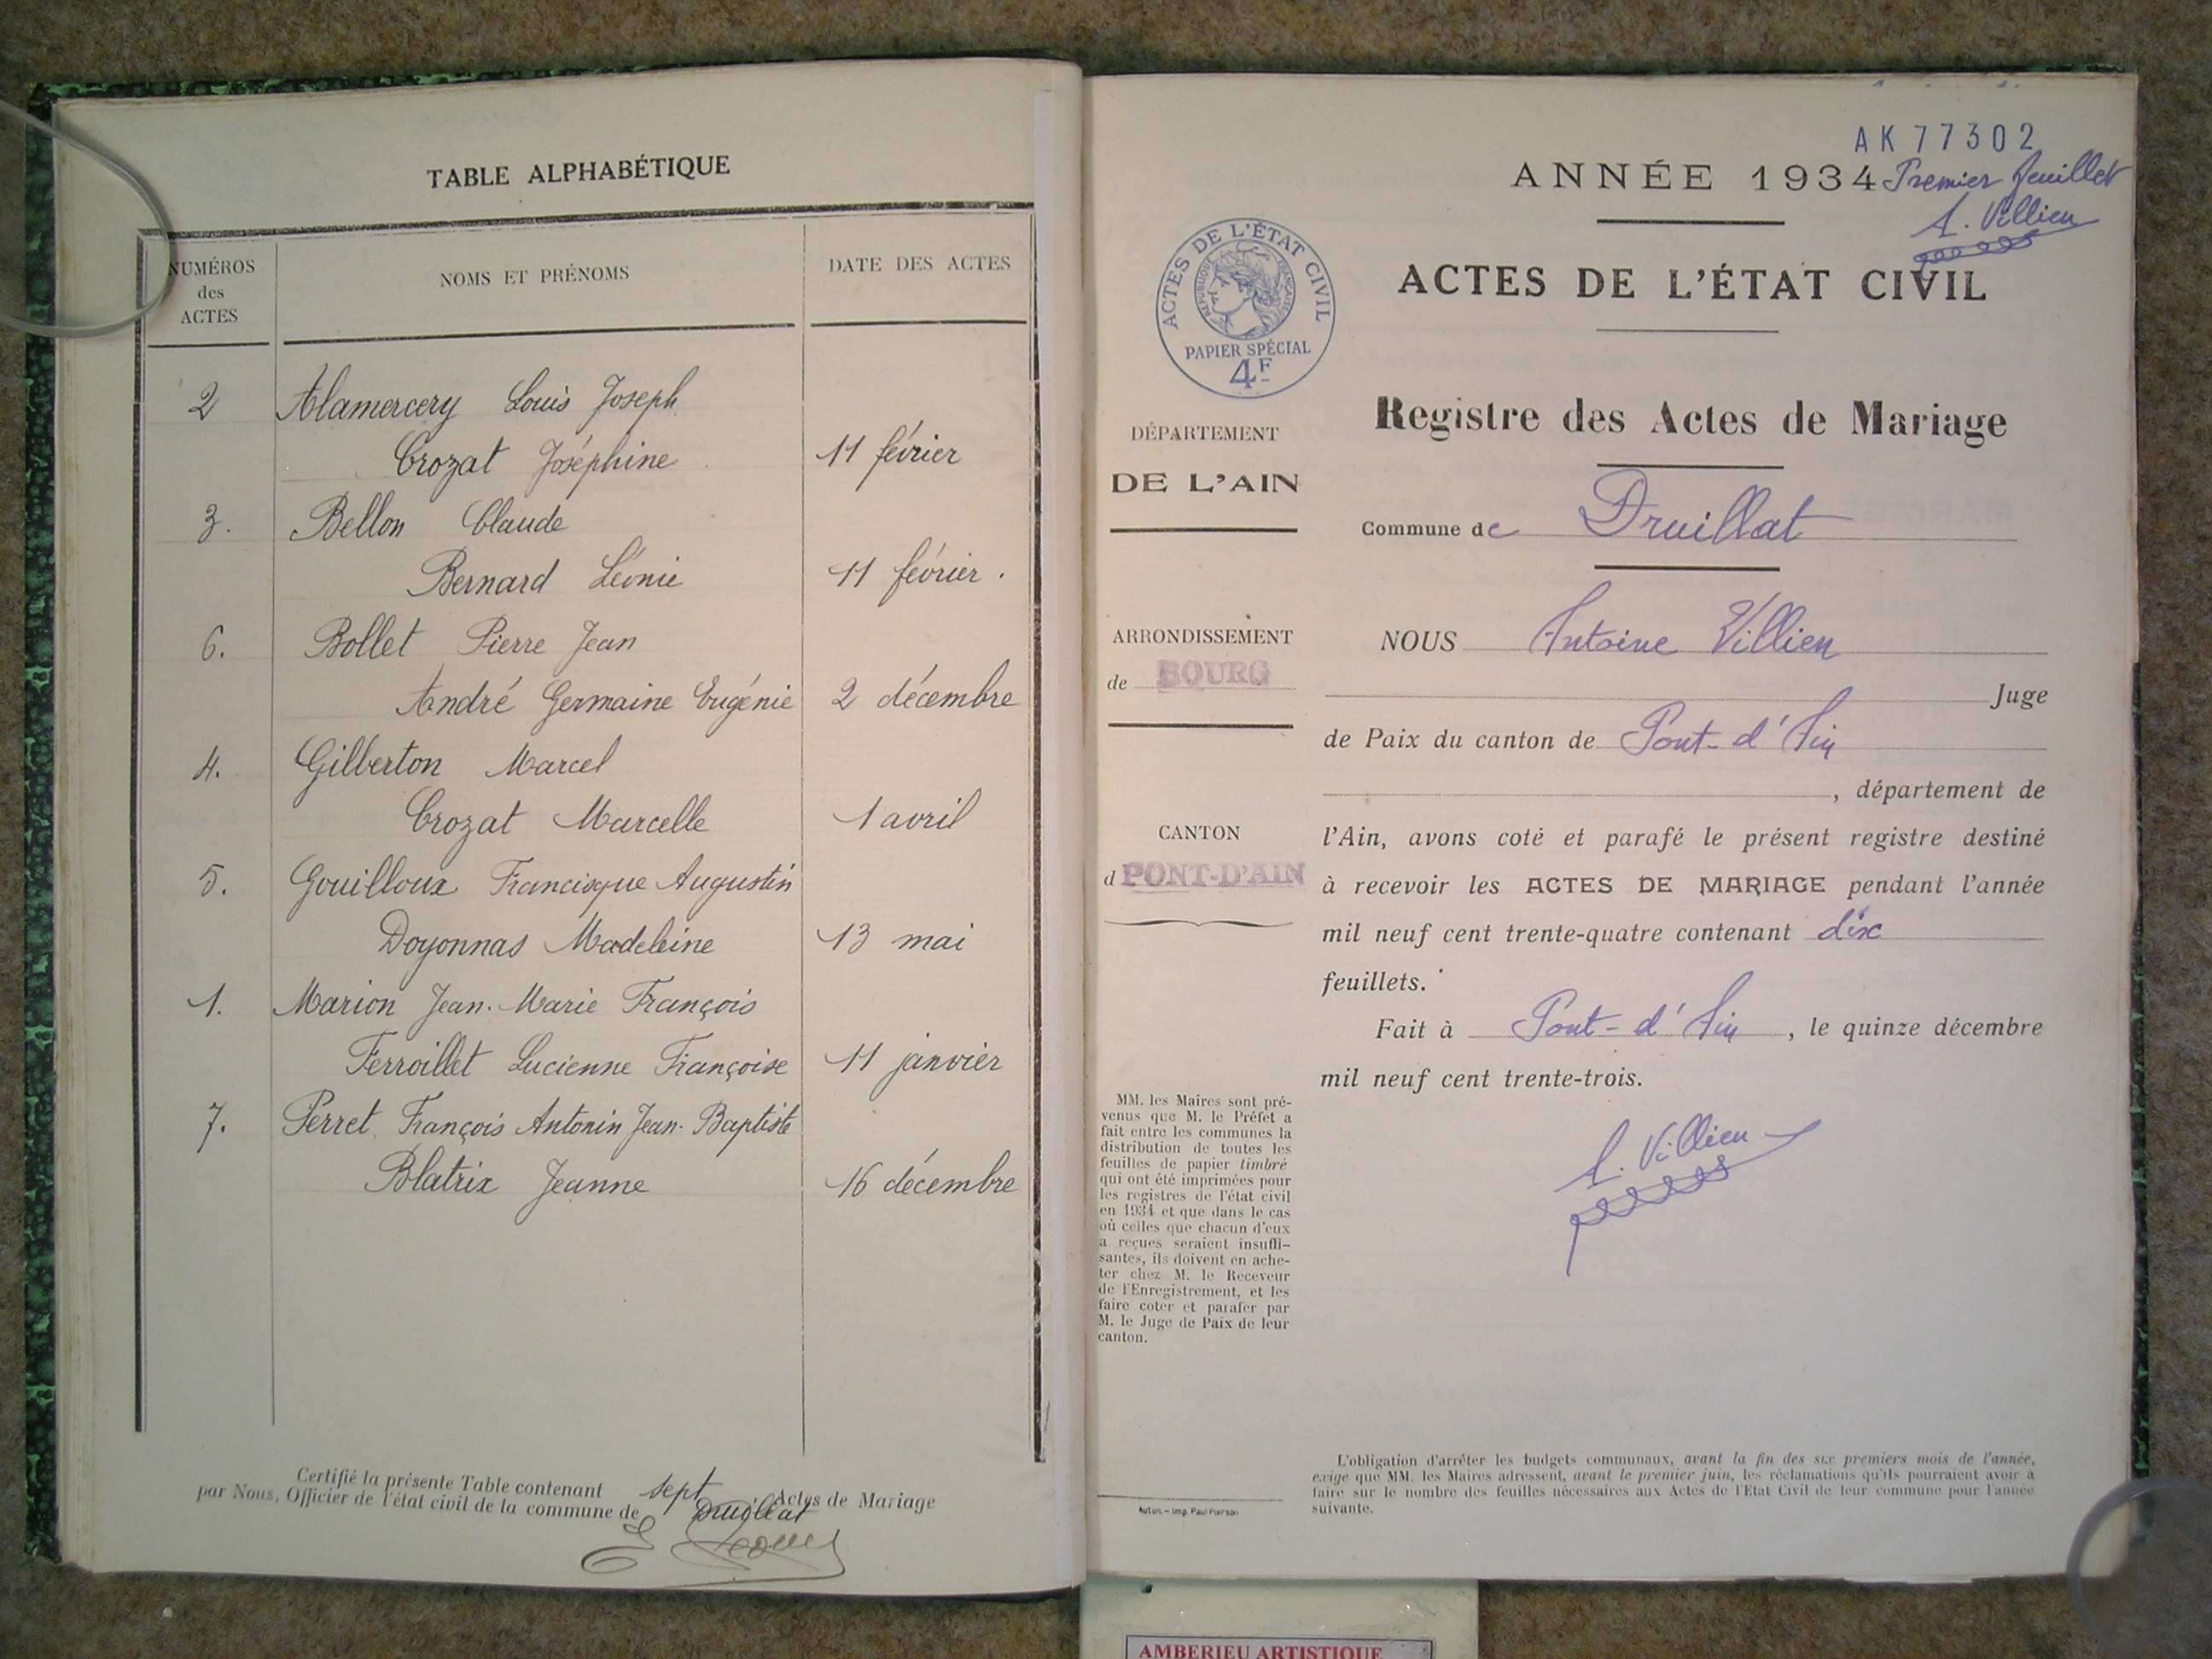 TABLE ALPHABÉTIQUE
NUMÉROS
des
ACTES
NOMS ET PRÉNOMS
DATE DES ACTES
2 Alamercery Louis Joseph
Crozat Joséphine 11 février
3. Bellon Claude
Bernard Léonie 11 février.
6. Bollet Pierre Jean
André Germaine Eugénie 2 décembre
4. Gilberton Marcel
Crozat Marcelle 1 avril
5. Gouilloux Francisque Augustin
Doyonnas Madeleine 13 mai
1. Marion Jean-Marie François
Ferroillet Lucienne Françoise 11 janvier
7. Perret François Antonin Jean-Baptiste
Blatrix Jeanne 16 décembre
Certifié la présente Table contenant sept Actes de Mariage
par Nous, Officier de l'état civil de la commune de Druillat
AK 77302
ANNÉE 1934 Premier feuillet
A. Villien
ACTES DE L'ÉTAT CIVIL
ACTES DE L'ÉTAT CIVIL
RÉPUBLIQUE FRANÇAISE
PAPIER SPÉCIAL
4F
Registre des Actes de Mariage
DÉPARTEMENT
DE L'AIN
Commune de Druillat
ARRONDISSEMENT
de BOURG
CANTON
d PONT-D'AIN
NOUS Antoine Villien
Juge
de Paix du canton de Pont-d'Ain
, département de
l'Ain, avons coté et parafé le présent registre destiné
à recevoir les ACTES DE MARIAGE pendant l'année
mil neuf cent trente-quatre contenant dix
feuillets.
Fait à Pont-d'Ain, le quinze décembre
mil neuf cent trente-trois.
A. Villien
MM. les Maires sont pré-
venus que M. le Préfet a
fait entre les communes la
distribution de toutes les
feuilles de papier timbré
qui ont été imprimées pour
les registres de l'état civil
en 1934 et que dans le cas
où celles que chacun d'eux
a reçues seraient insuffi-
santes, ils doivent en ache-
ter chez M. le Receveur
de l'Enregistrement, et les
faire coter et parafer par
M. le Juge de Paix de leur
canton.
Autun. – Imp. Paul Poirson
L'obligation d'arrêter les budgets communaux, avant la fin des six premiers mois de l'année,
exige que MM. les Maires adressent, avant le premier juin, les réclamations qu'ils pourraient avoir à
faire sur le nombre des feuilles nécessaires aux Actes de l'Etat Civil de leur commune pour l'année
suivante.
AMBERIEU ARTISTIQUE